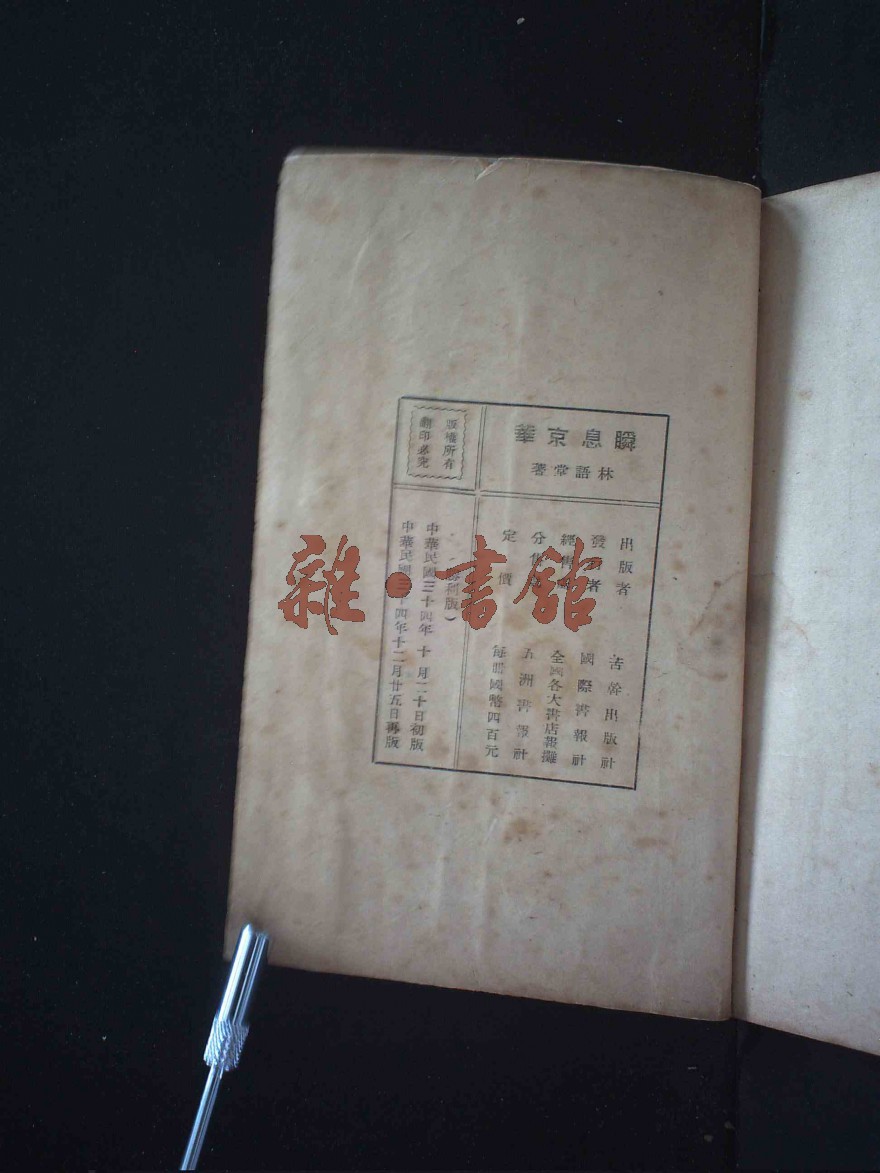 瞬息京華
林語堂著
版權所有
翻印必究
出版者 苦幹出版社
發行者 國際書報社
經售處 全國各大書店報攤
分售處 五洲書報社
定價 每册國幣四百元
初版)
中華民國三十四年十月二十日初版
中華民國三十四年十二月廿五日再版
雜·書館